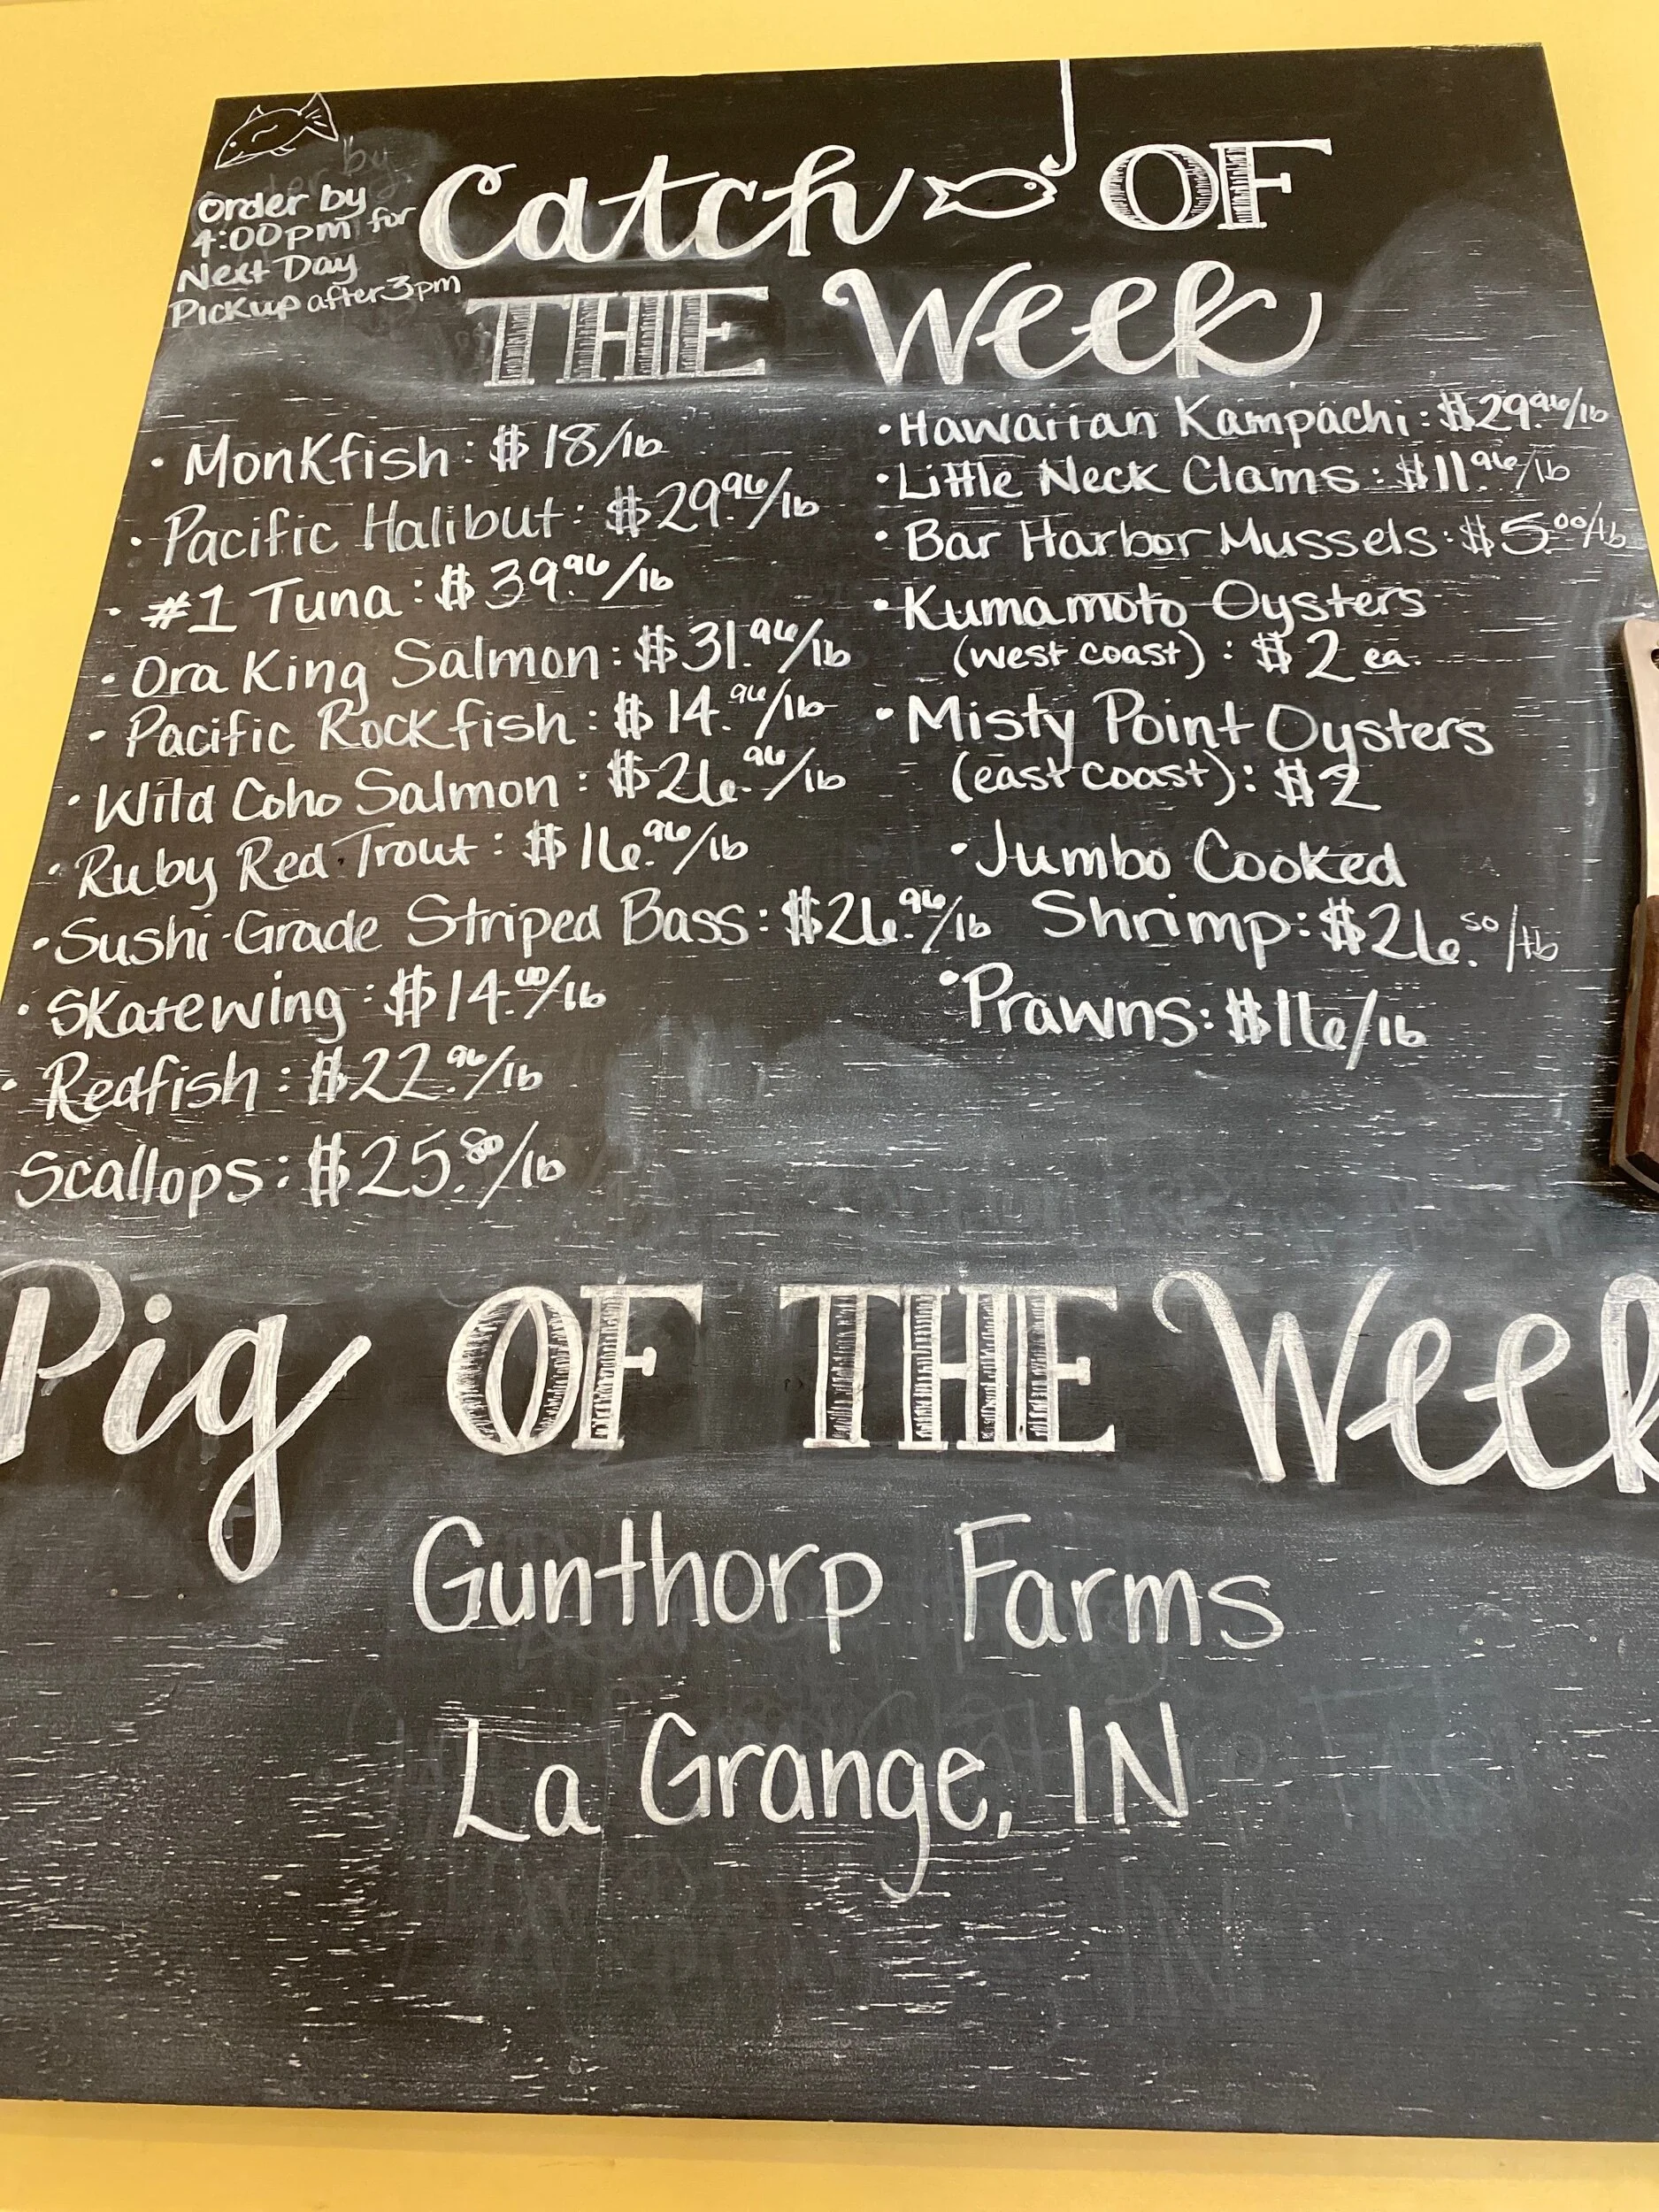 Order by
4:00pm for
Next Day
Pickup after 3pm
Catch OF
THE Week
• Monkfish: $18/lb
• Pacific Halibut: $29.96/lb
• #1 Tuna: $39.96/lb
• Ora King Salmon: $31.96/lb
• Pacific Rockfish: $14.96/lb
• Wild Coho Salmon: $26.96/lb
• Ruby Red Trout: $16.96/lb
• Sushi-Grade Striped Bass: $26.96/lb
• Skatewing: $14.00/lb
• Redfish: $22.96/lb
Scallops: $25.80/lb
• Hawaiian Kampachi: $29.96/lb
• Little Neck Clams: $11.96/lb
• Bar Harbor Mussels: $5.00/lb
• Kumamoto Oysters
(west coast): $2 ea.
• Misty Point Oysters
(east coast): $2
• Jumbo Cooked
Shrimp: $26.50/lb
• Prawns: $16/lb
Pig OF THE Week
Gunthorp Farms
La Grange, IN